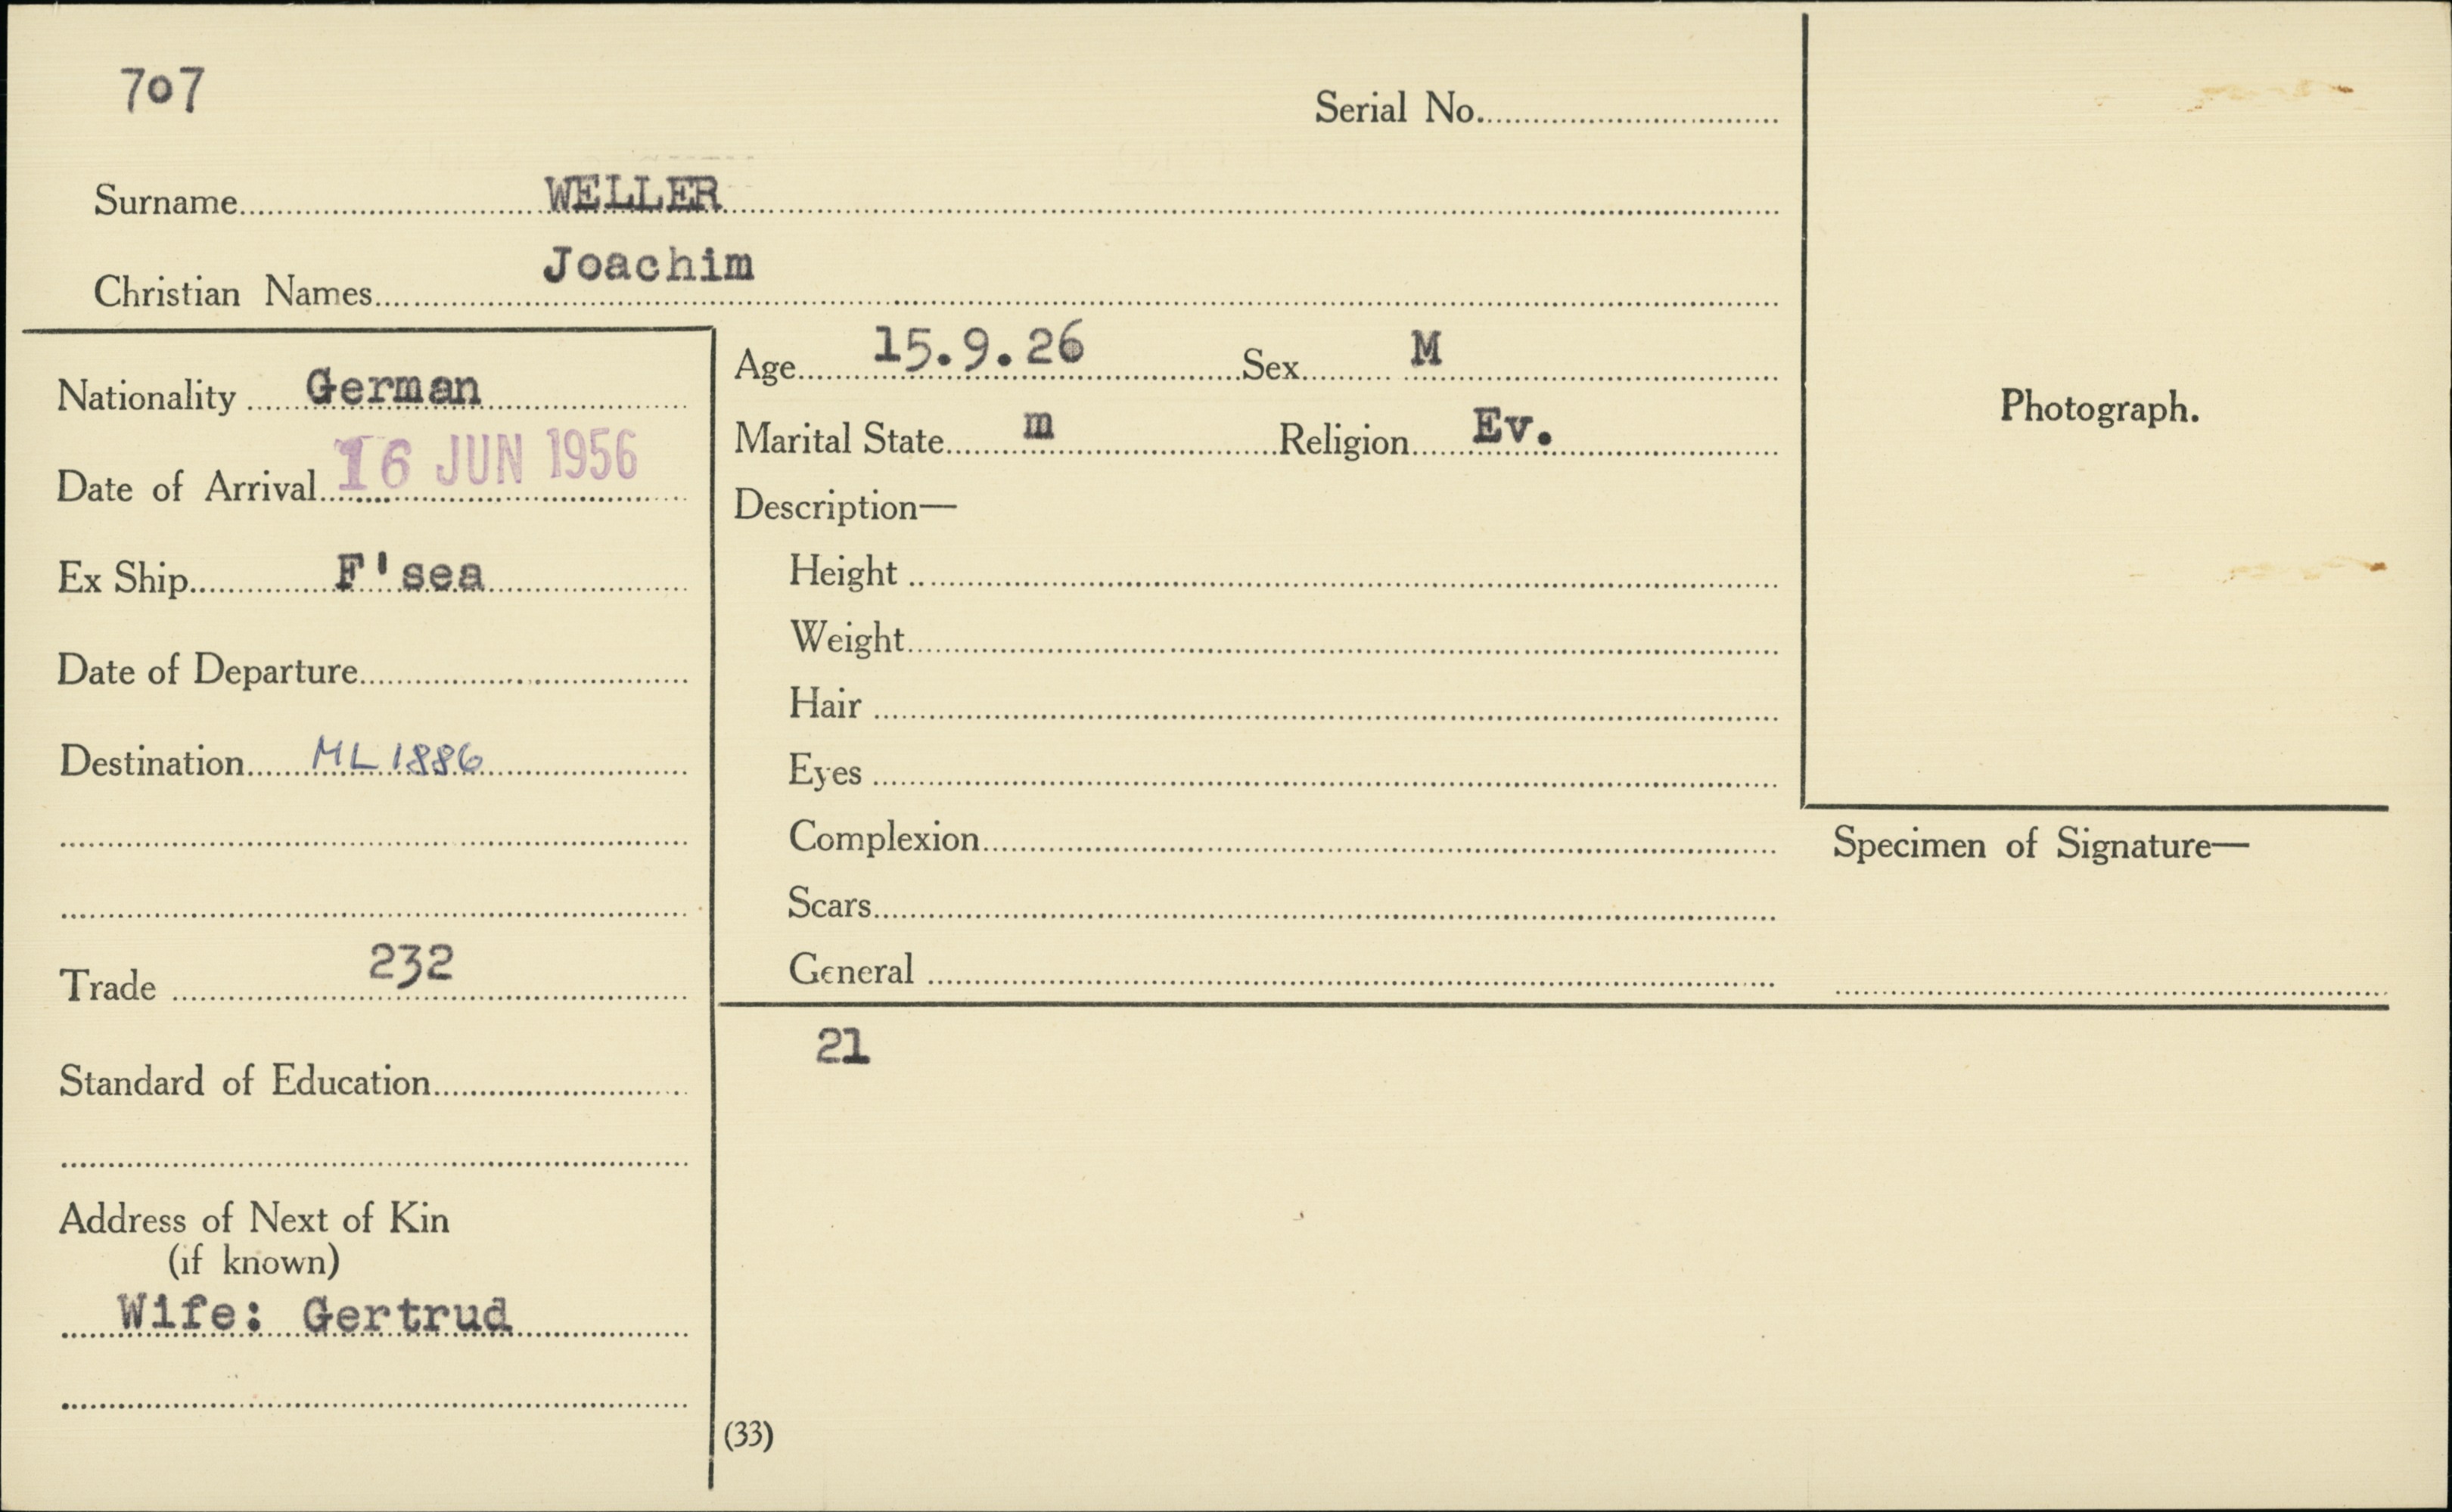 707
Serial No.
Surname WELLER
Christian Names Joachim
Nationality German
Date of Arrival 16 JUN 1956
Ex Ship F'sea
Date of Departure
Destination ML 1886
Trade 232
Standard of Education
Address of Next of Kin
(if known)
Wife: Gertrud
Age 15.9.26 Sex M
Marital State m Religion Ev.
Description—
Height
Weight
Hair
Eyes
Complexion
Scars
General
21
(33)
Photograph.
Specimen of Signature—